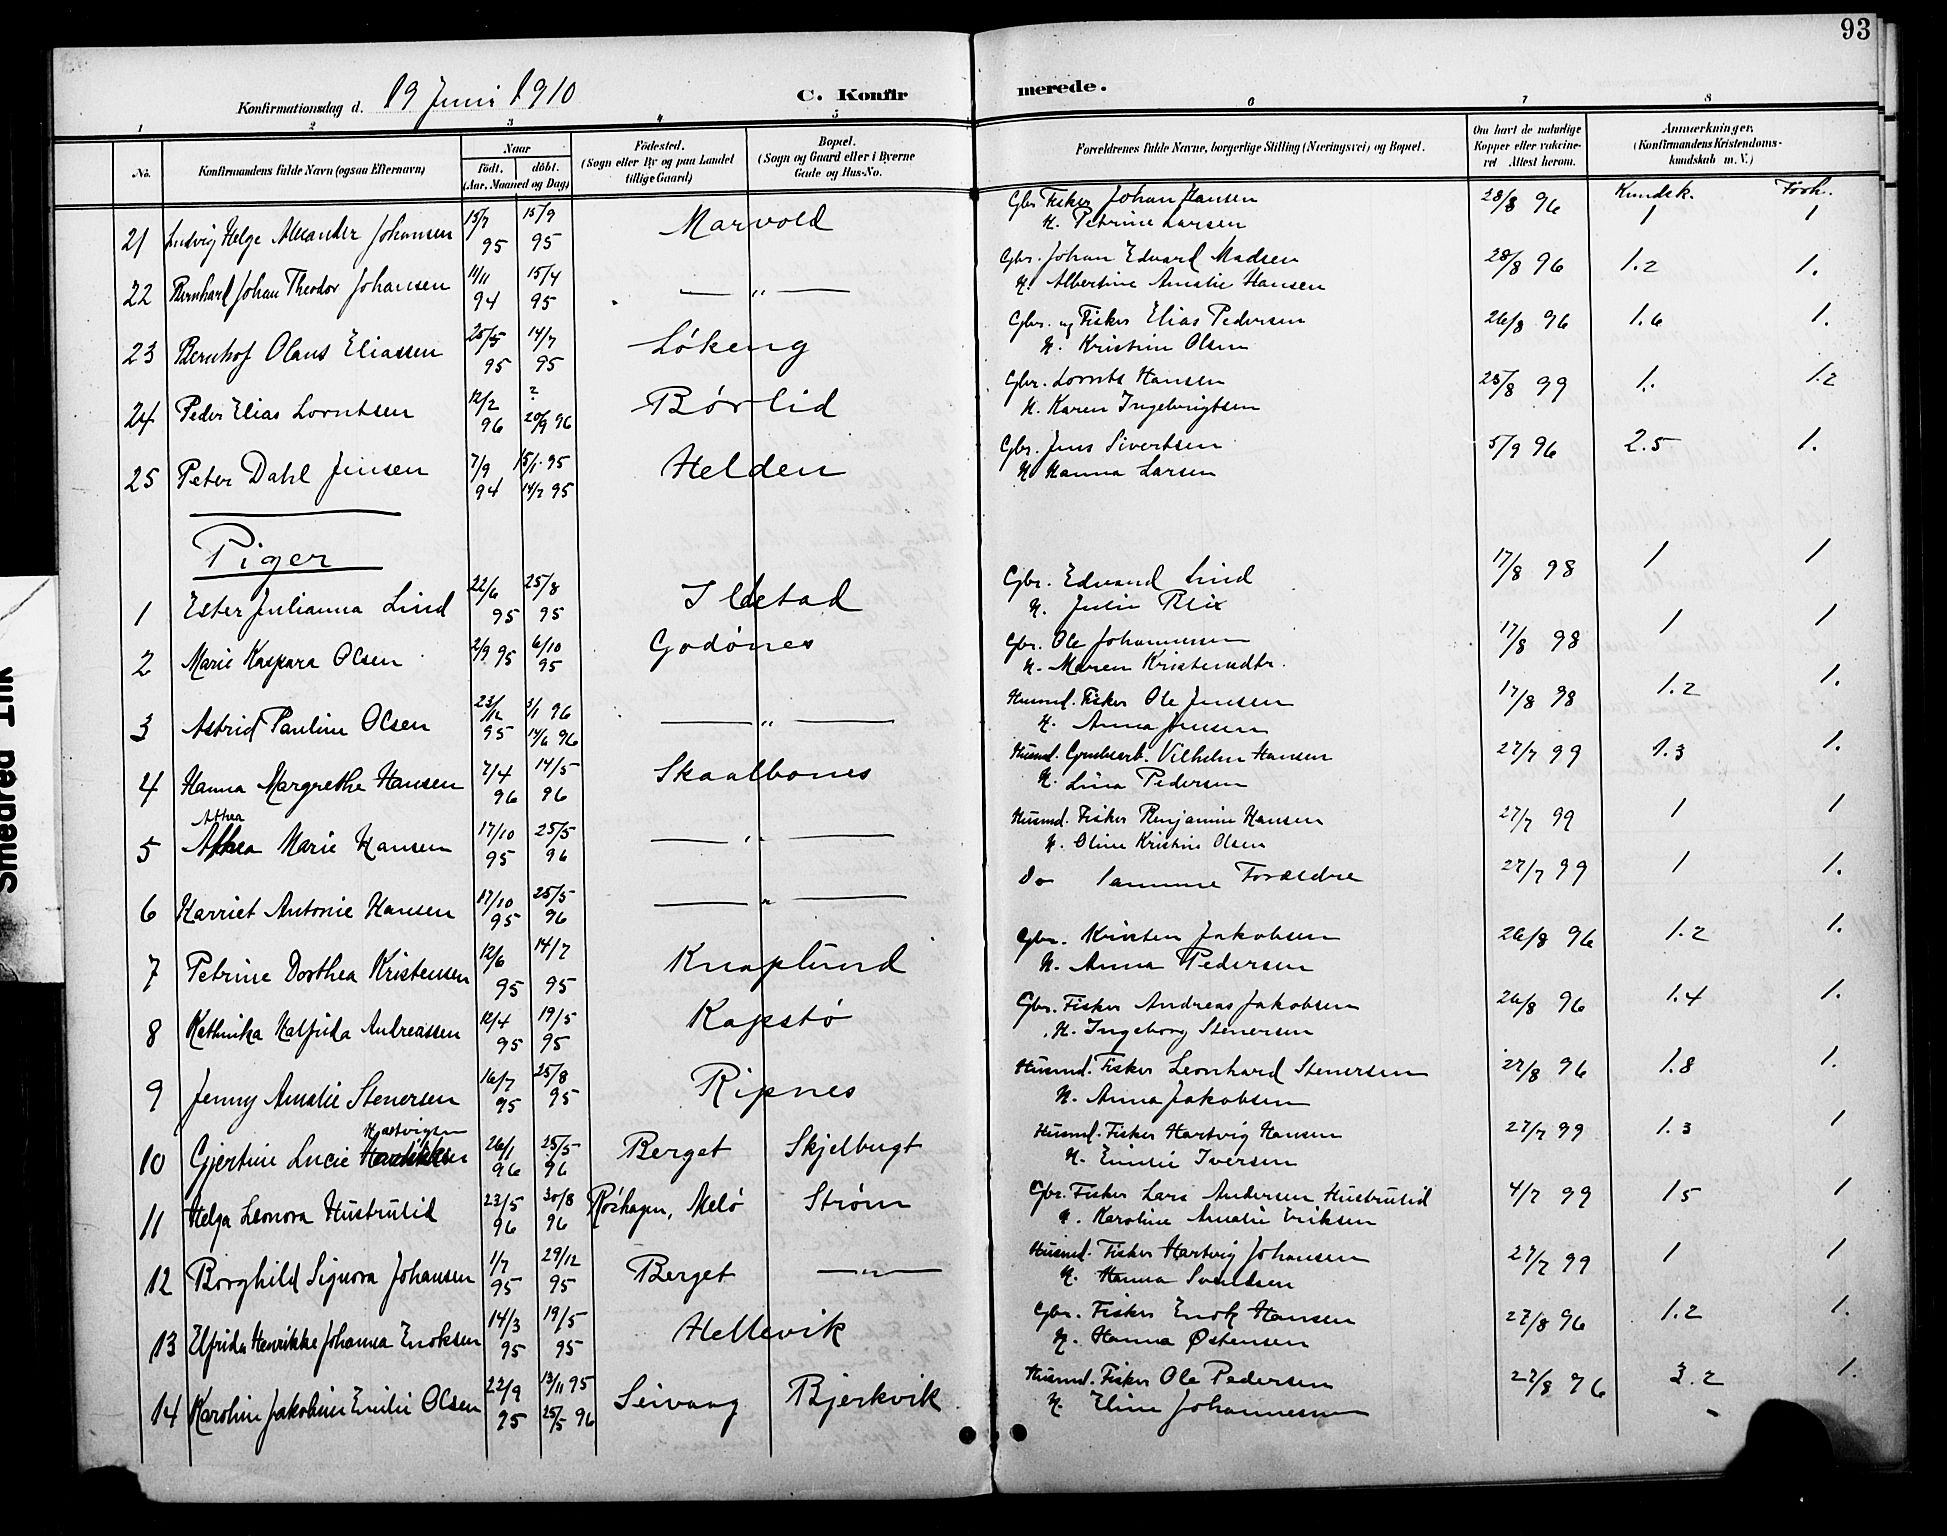 93
Konfirmationsdag d. 19 Juni 1910 C. Konfirmerede.
1 2 3 4 5 6 7 8
No. Konfirmandens fulde Navn (ogsaa Efternavn) Naar født. døbt. (Aar, Maaned og Dag) Födested. (Sogn eller By og paa Landet tillige Gaard) Bopæl. (Sogn og Gaard eller i Byerne Gade og Hus-No. Forældrenes fulde Navne, borgerlige Stilling (Næringsvei) og Bopæl. Om havt de naturlige Kopper eller vaccineret Attest herom. Anmærkninger, (Konfirmandens Kristendomskundskab m. V.)
Kundsk. Forh.
21 Ludvig Helge Alexander Johansen 15/7 95 15/9 95 Marvold Gbr. Fisker Johan Hansen 28/8 96 1 1
H. Petrine Larsen
22 Bernhard Johan Theodor Johansen 11/11 94 15/4 95 — " — Gbr. Johan Edvard Madsen 28/8 96 1.2 1.
H. Albertine Amalie Hansen
23 Bernhof Olaus Eliassen 25/5 95 14/7 95 Løkeng Gbr. og Fisker Elias Pedersen 26/8 96 1.6 1.
H. Kristine Olsen
24 Peder Elias Lorntsen 12/2 96 ? 20/9 96 Børlid Gbr. Lornts Hansen 25/8 99 1. 1.2
H. Karen Ingebrigtsen
25 Peter Dahl Jensen 7/9 94 15/1 95 14/7 95 Helden Gbr. Jens Sivertsen 5/9 96 2.5 1.
H. Hanna Larsen
Piger
1 Ester Julianna Lind 22/6 95 25/8 95 Ildstad Gbr. Edvard Lind 17/8 98 1 1
H. Julie Blix
2 Marie Kaspara Olsen 2/9 95 6/10 95 Godønes Gbr. Ole Johannessen 17/8 98 1 1
H. Maren Kristensdtr.
3 Astrid Pauline Olsen 23/12 95 3/1 96 14/6 96 — " — Husmd. Fisker Ole Jensen 17/8 98 1.2 1.
H. Anna Jensen
4 Hanna Margrethe Hansen 7/4 96 14/5 96 Skaalbones Husmd. Grubearb. Vilhelm Hansen 27/7 99 1.3 1.
H. Lina Pedersen
Althea
5 Marie Hansen 17/10 95 25/5 96 — " — Husmd. Fisker Benjamin Hansen 27/7 99 1 1
H. Oline Kristine Olsen
6 Harriet Antonie Hansen 17/10 95 25/5 96 — " — Do Samme Forældre 27/7 99 1 1.
7 Petrine Dorthea Kristensen 12/6 95 14/7 95 Knaplund Gbr. Kristen Jakobsen 26/8 96 1.2 1.
H. Anna Pedersen
8 Kathinka Halfrida Andreassen 12/4 95 19/5 95 Kapstø Gbr. Fisker Andreas Jakobsen 26/8 96 1.4 1.
H. Ingeborg Stenersen
9 Jenny Amalie Stenersen 16/7 95 25/8 95 Ripnes Husmd. Fisker Leonhard Stenersen 27/8 96 1.8 1.
H. Anna Jakobsen
Hartvigsen
10 Gjertine Lucie 26/1 96 25/5 96 Berget Skjelbugt Husmd. Fisker Hartvig Hansen 27/7 99 1.3 1
H. Emilie Iversen
11 Helga Leonora Hustrulid 23/5 96 30/8 96 Røshagen, Melø Strøm Gbr. Fisker Lars Andersen Hustrulid 4/7 99 1 5 1
H. Karoline Amalie Eriksen
12 Borghild Signora Johansen 1/7 95 29/12 95 Berget — " — Husmd. Fisker Hartvig Johansen 27/7 99 1 1
H. Hanna Svendsen
13 Elfrida Henrikke Johanna Enoksen 14/3 95 19/5 95 Hellevik Gbr. Fisker Enok Hansen 27/8 96 1.2 1.
H. Hanna Østensen
14 Karoline Jakobine Emilie Olsen 22/9 95 13/11 95 25/5 96 Seivaag Bjerkvik Husmd. Fisker Ole Pedersen 27/8 96 3.2 1.
H. Eline Johannessen